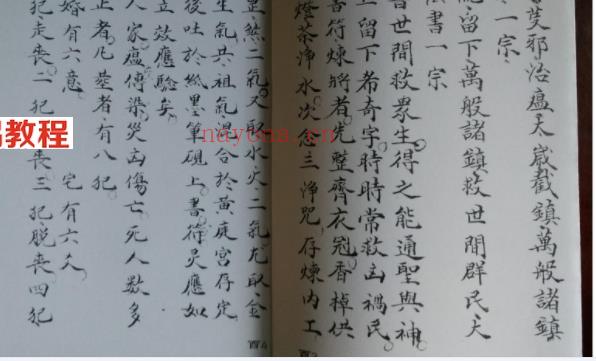 芟邪治瘟天歲截鎮萬般諸鎮
一宗
留下萬般諸鎮救世間群民天
法書一宗
書世間救眾生得之能通聖與神
上留下希奇字時時常救凶禍民
書符煉將者先整齊衣冠香棹供
燈茶淨水次念三淨咒存煉内工
然二氣又取水火二氣先取金
生氣共祖氣混合於黃庭宮存定
後吐於紙墨筆硯上書符灵應如
立效應驗矣
人家瘟傳染災凶傷亡死人數多
正者凡葬者有八犯
婚有六意 宅有六
犯走丧二犯 丧三犯脱丧四犯
教程
nayona.com